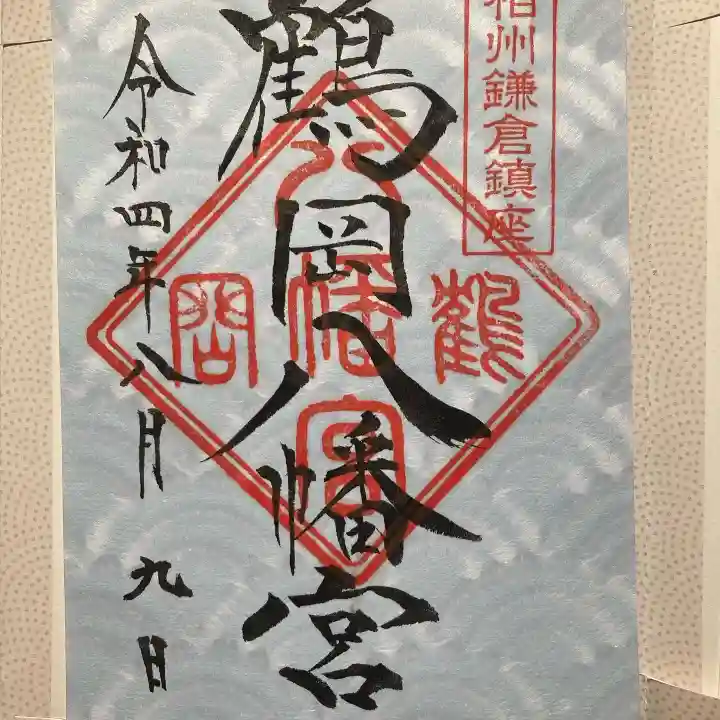 相州鎌倉鎮座
鶴岡八幡宮
鶴
八幡宮
岡
令和四年八月九日